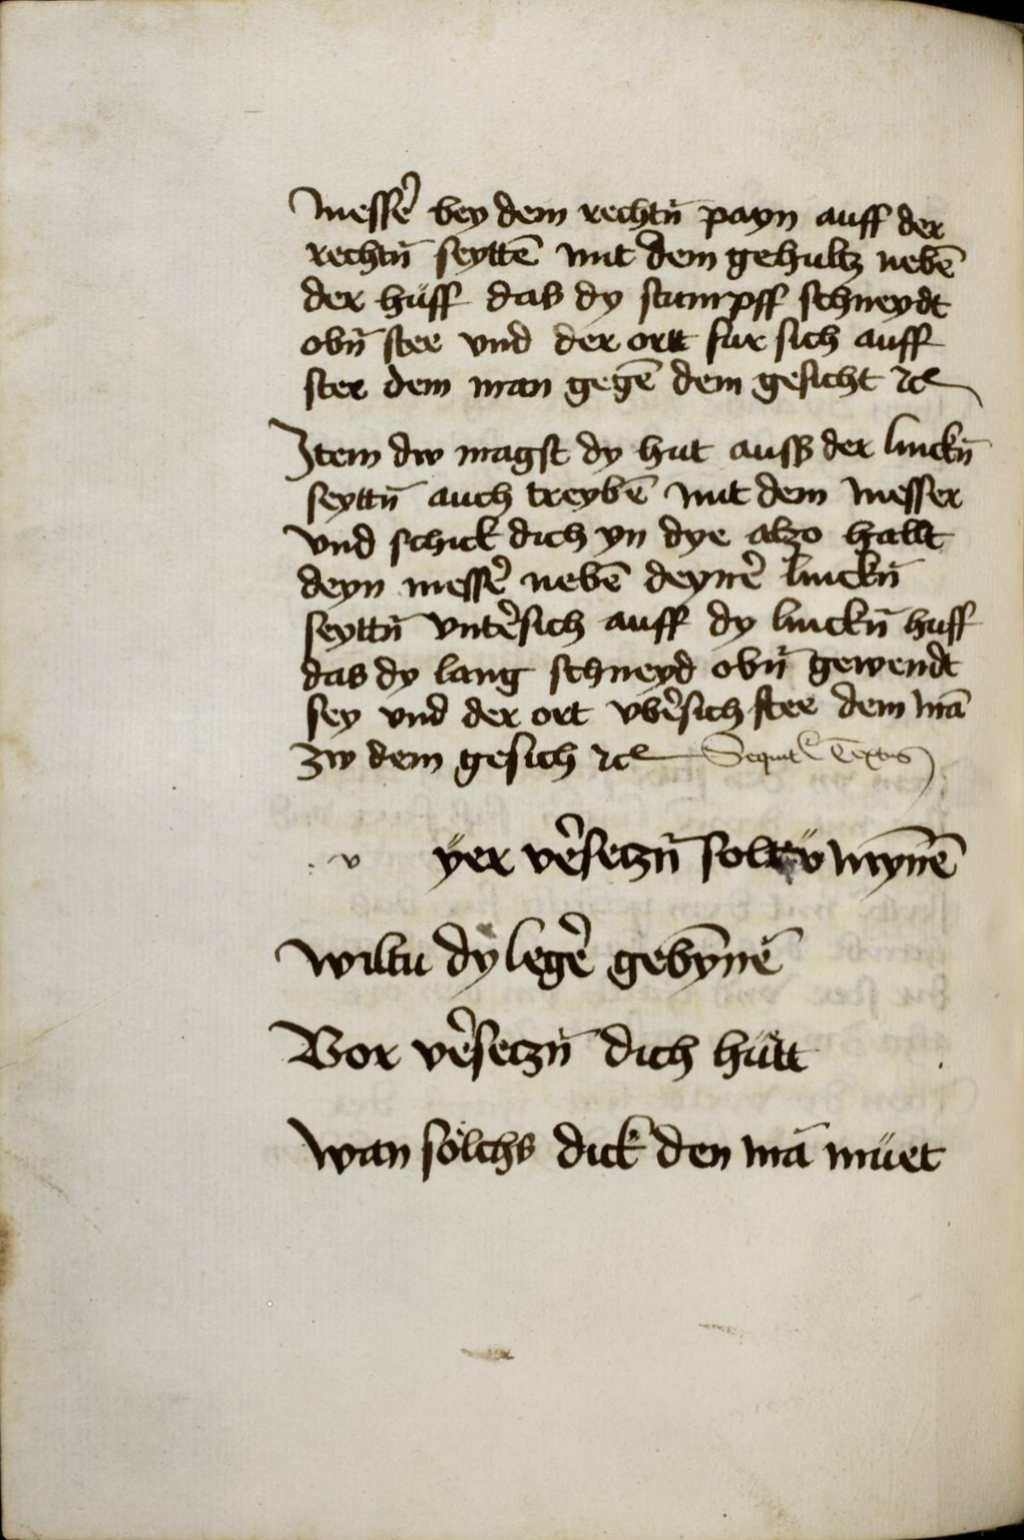 messeʳ bey dem rechtn̄ payn auff der
rechtn̄ seyttē mit dem gehultz nebē
der hüff das dy stumpff schneydt
obn̄ stee vnd der ortt fur sich auff
stee dem man gegē dem gesicht ⁊c
Item dw magst dy hut auss der linckn̄
seyttn̄ auch treybē mit dem messer
vnd schick dich yn dye alzo hallt
deyn messeʳ nebē deyneʳ linckn̄
seyttn̄ vnteʳsich auff dy linckn̄ huff
das dy lang schneyd obn̄ gewendt
sey vnd der ort vbeʳsich stee dem mā
zw dem gesich ⁊c Sequitʳ Textus
v ÿer veʳseczn̄ soltu mynnē
wiltu dy legeʳ gebynnē
Vor veʳseczn̄ dich hütt
wan sölchs dick den mā müet